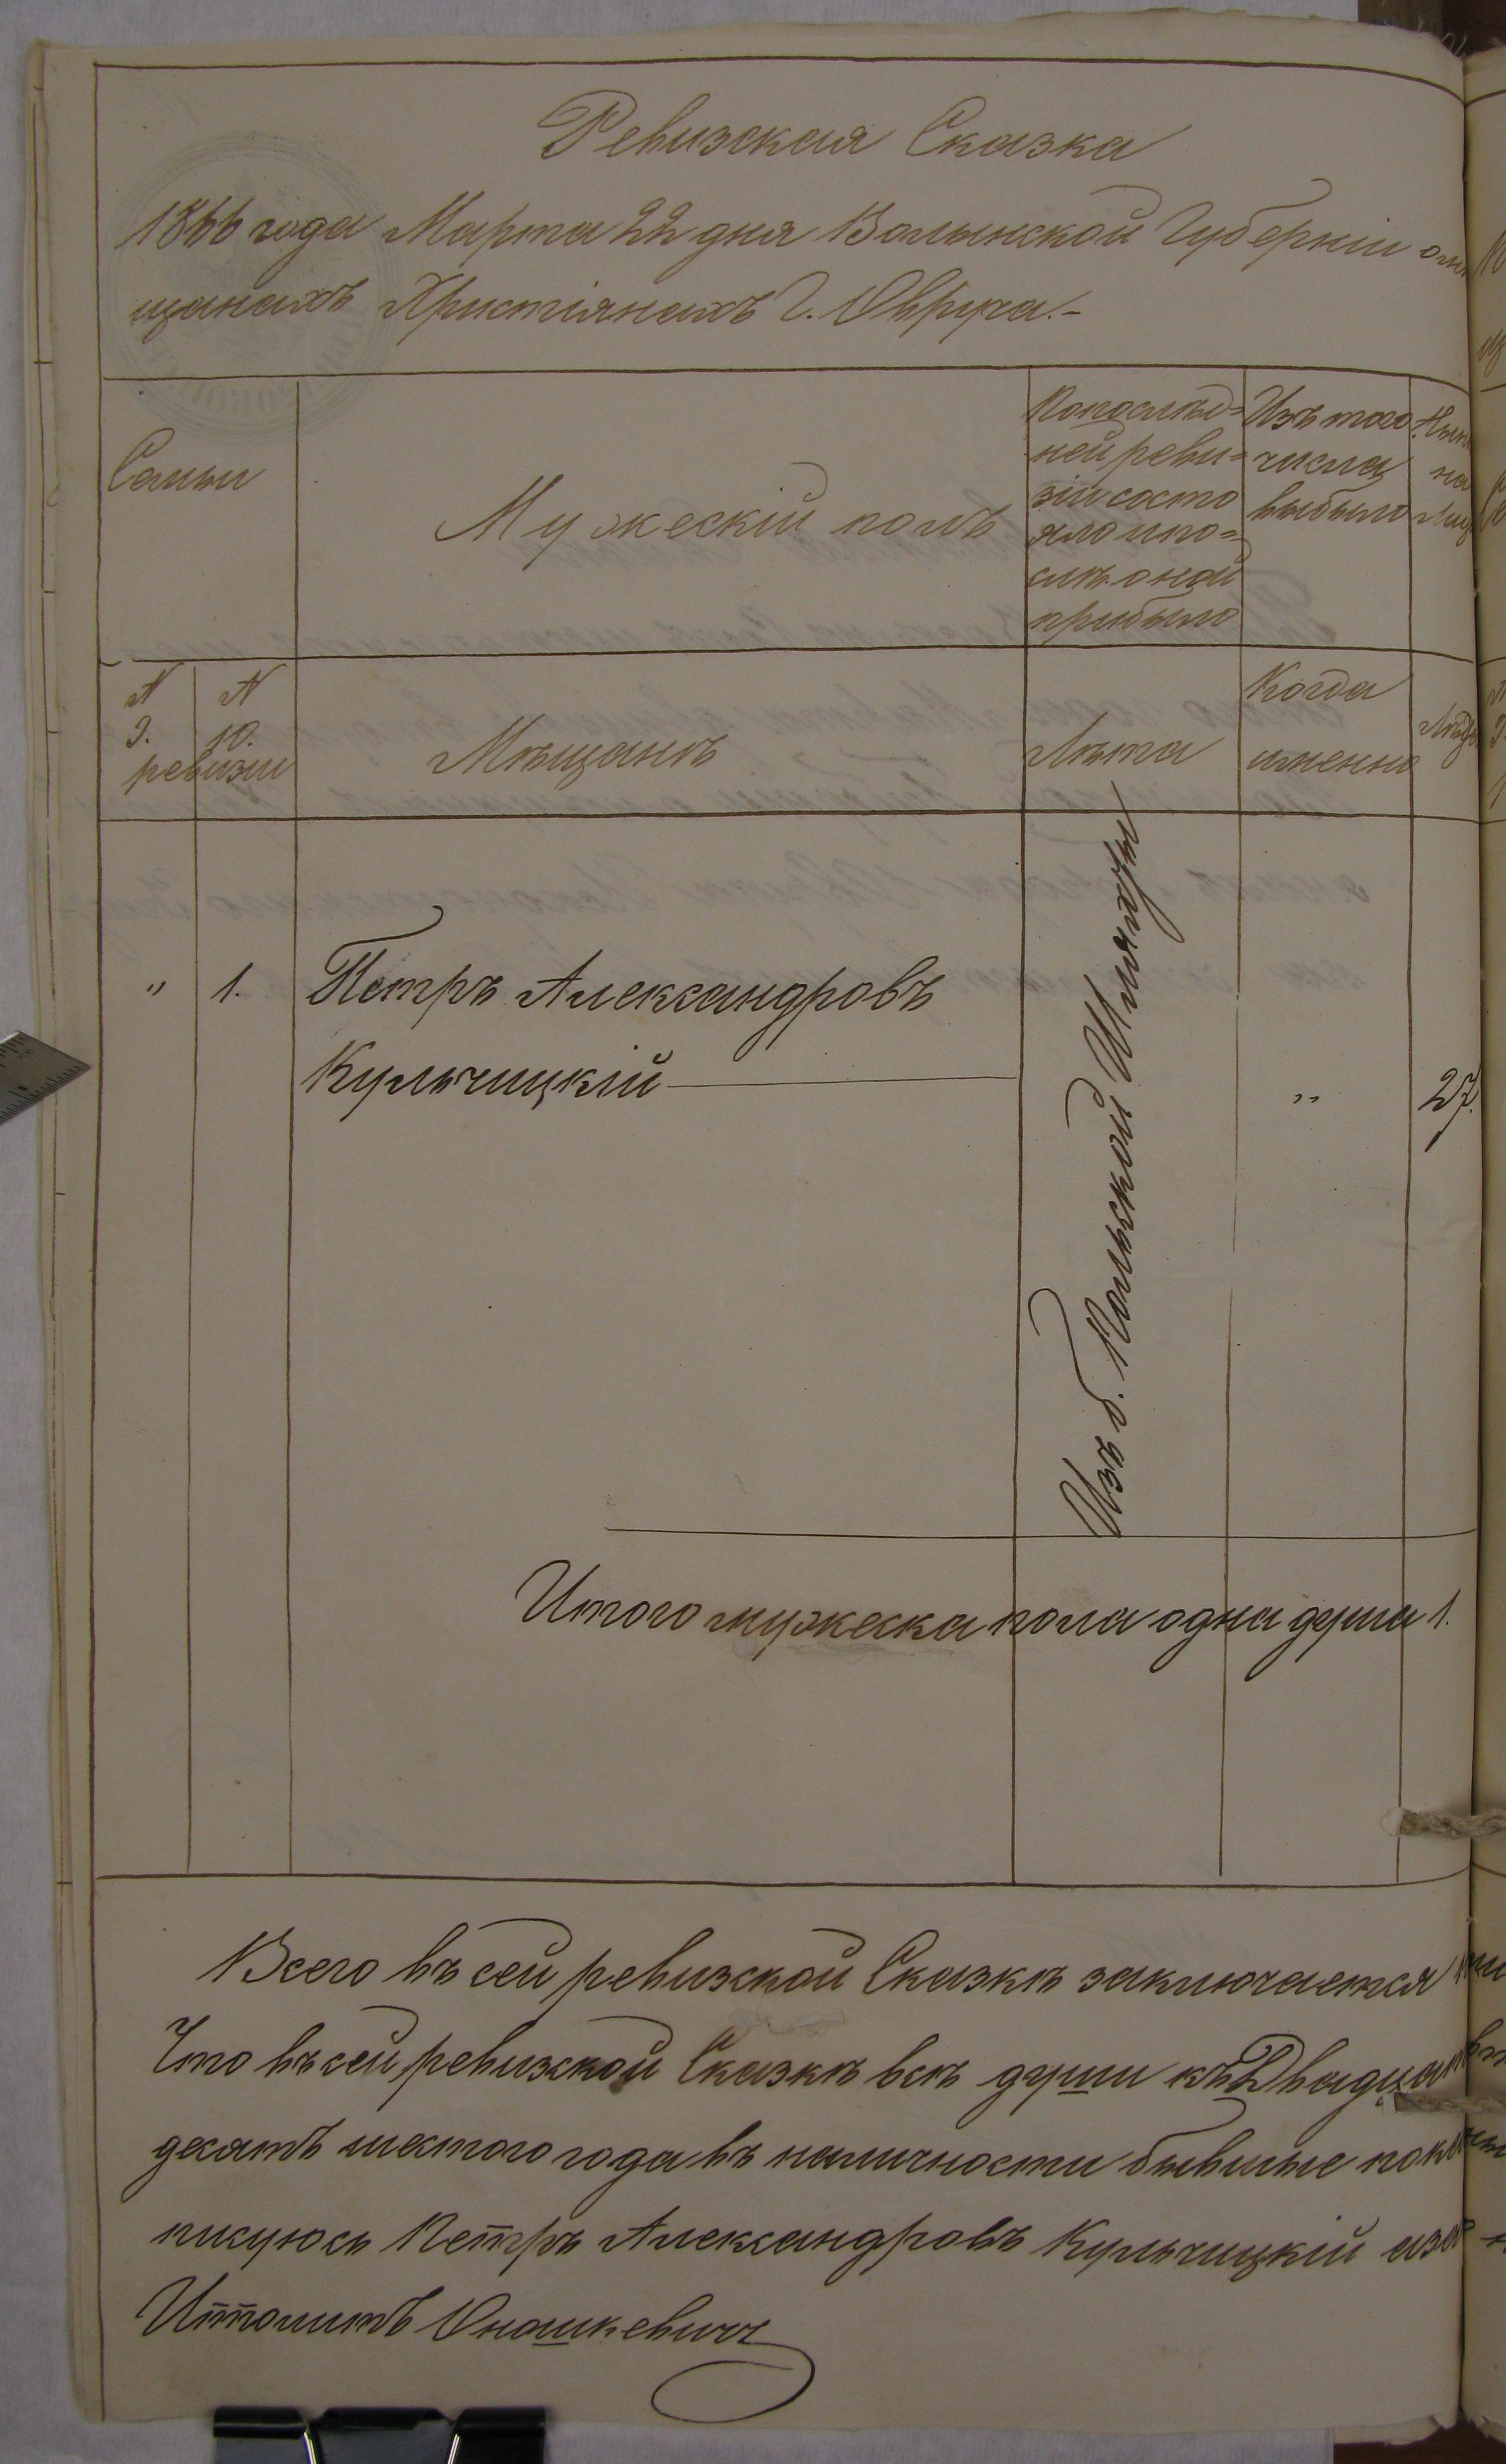 Ревизская Сказка
1866 года Марта 22 дня Волынской Губернiи о мѣ
щанахъ Христiянахъ Г. Овруча.-
Семьи
Мужескiй полъ
По послѣд=
ней реви=
зiи состо
яло и по=
слѣ оной
прибыло
Изъ того
числа
выбыло
Нынѣ
на
Лиц
N
9.
N
10.
ревизiи
Мѣщанъ
Лѣта
Когда
именно
Лѣта
" 1. Петръ Александровъ
Кульчицкiй
Изъ б. Польской Шляхты
" 27.
Итого мужеска пола одна душа 1.
Всего въ сей ревизской Сказкѣ заключается
Что въ сей ревизской Сказкѣ всѣ души къ Двадцать
десятъ шестого года въ наличности бывшые
писуюсь Петръ Александровъ Кульчицкiй
Иполитъ Юношкевичъ